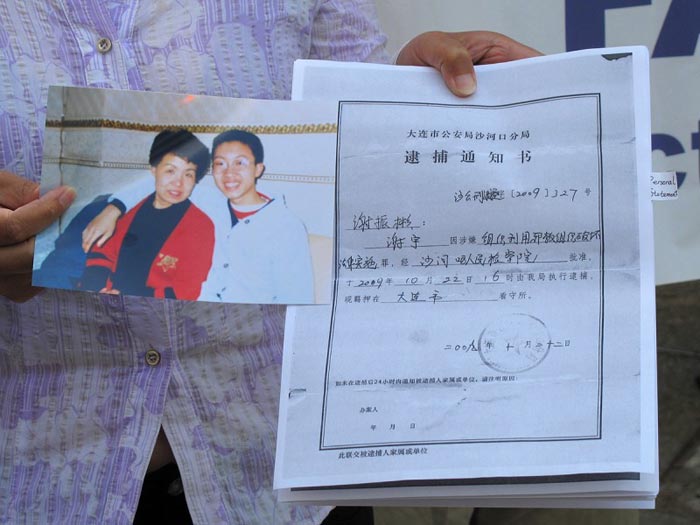 大连市公安局沙河口分局
逮捕通知书
〔2009〕327号
谢振彬：
谢宇 因涉嫌 组织利用邪教组织破坏
法律实施 罪，经 沙河口人民检察院 批准，
于2009年10月22日16时由我局执行逮捕，
现羁押在 大连市 看守所。
二00九年十月二十二日
如未在逮捕后24小时内通知被逮捕人家属或单位，请注明原因：
办案人
年 月 日
此联交被逮捕人家属或单位
FA
General
Statement